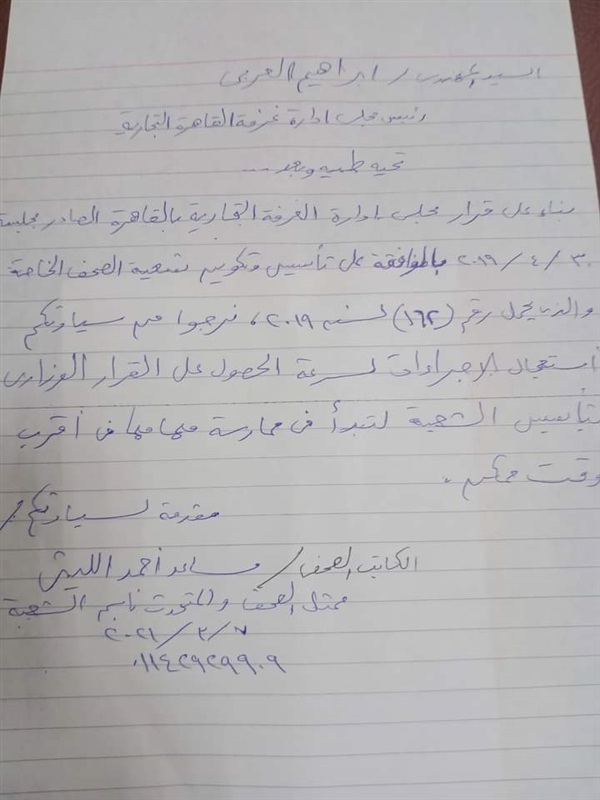 السيد المهندس / ابراهيم العربى
رئيس مجلس ادارة غرفة القاهرة التجارية
تحيه طيبه وبعد ....
بناء على قرار مجلس ادارة الغرفة التجارية بالقاهرة الصادر بجلسة
٣٠ / ٤ / ٢٠١٩ بالموافقة على تأسيس وتكوين شعبة الصحف الخاصة
والذى يحمل رقم (١٦٢) لسنه ٢٠١٩، نرجوا من سيادتكم
استعجال الاجراءات لسرعة الحصول على القرار الوزارى
بتأسيس الشعبة لتبدأ فى ممارسة مهامها فى أقرب
وقت ممكن .
مقدمة لسيادتكم /
الكاتب الصحفى / أحمد الليثى
ممثل الصحف والمتحدث باسم الشعبة
٧ / ٣ / ٢٠٢١
٠١١٤٢٩٢٩٩٠٩